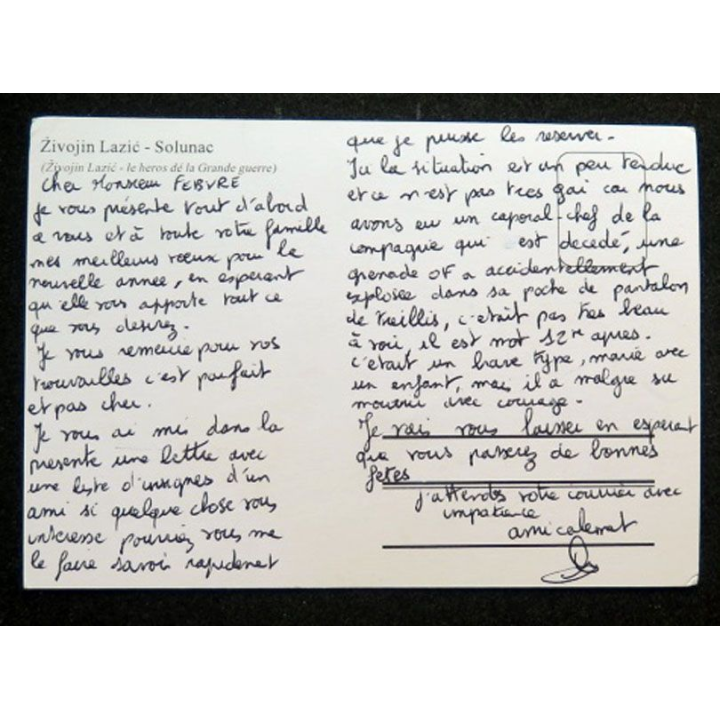 Živojin Lazić - Solunac
(Živojin Lazić - le heros dé la Grande guerre)
Cher Monsieur FEBVRE
Je vous présente tout d'abord
a vous et à toute votre famille
mes meilleurs voeux pour la
nouvelle annee, en esperant
qu'elle vous apporte tout ce
que vous desirez.
Je vous remercie pour vos
trouvailles c'est parfait
et pas cher.
Je vous ai mis dans la
presente une lettre avec
une liste d'insignes d'un
ami si quelque chose vous
interesse pourriez vous me
le faire savoir rapidement
que je puisse les reserver.
Ici la situation est un peu tendue
et ce n'est pas tres gai car nous
avons eu un caporal-chef de la
compagnie qui est decedé, une
grenade OF a accidentellement
explosée dans sa poche de pantalon
de treillis, c'etait pas tres beau
à voir, il est mort 12H apres.
c'etait un brave type, marié avec
un enfant, mais il a malgre su
mourir avec courage.
Je vais vous laisser en esperant
que vous passerez de bonnes
fetes
j'attends votre courrier avec
impatience
amicalement